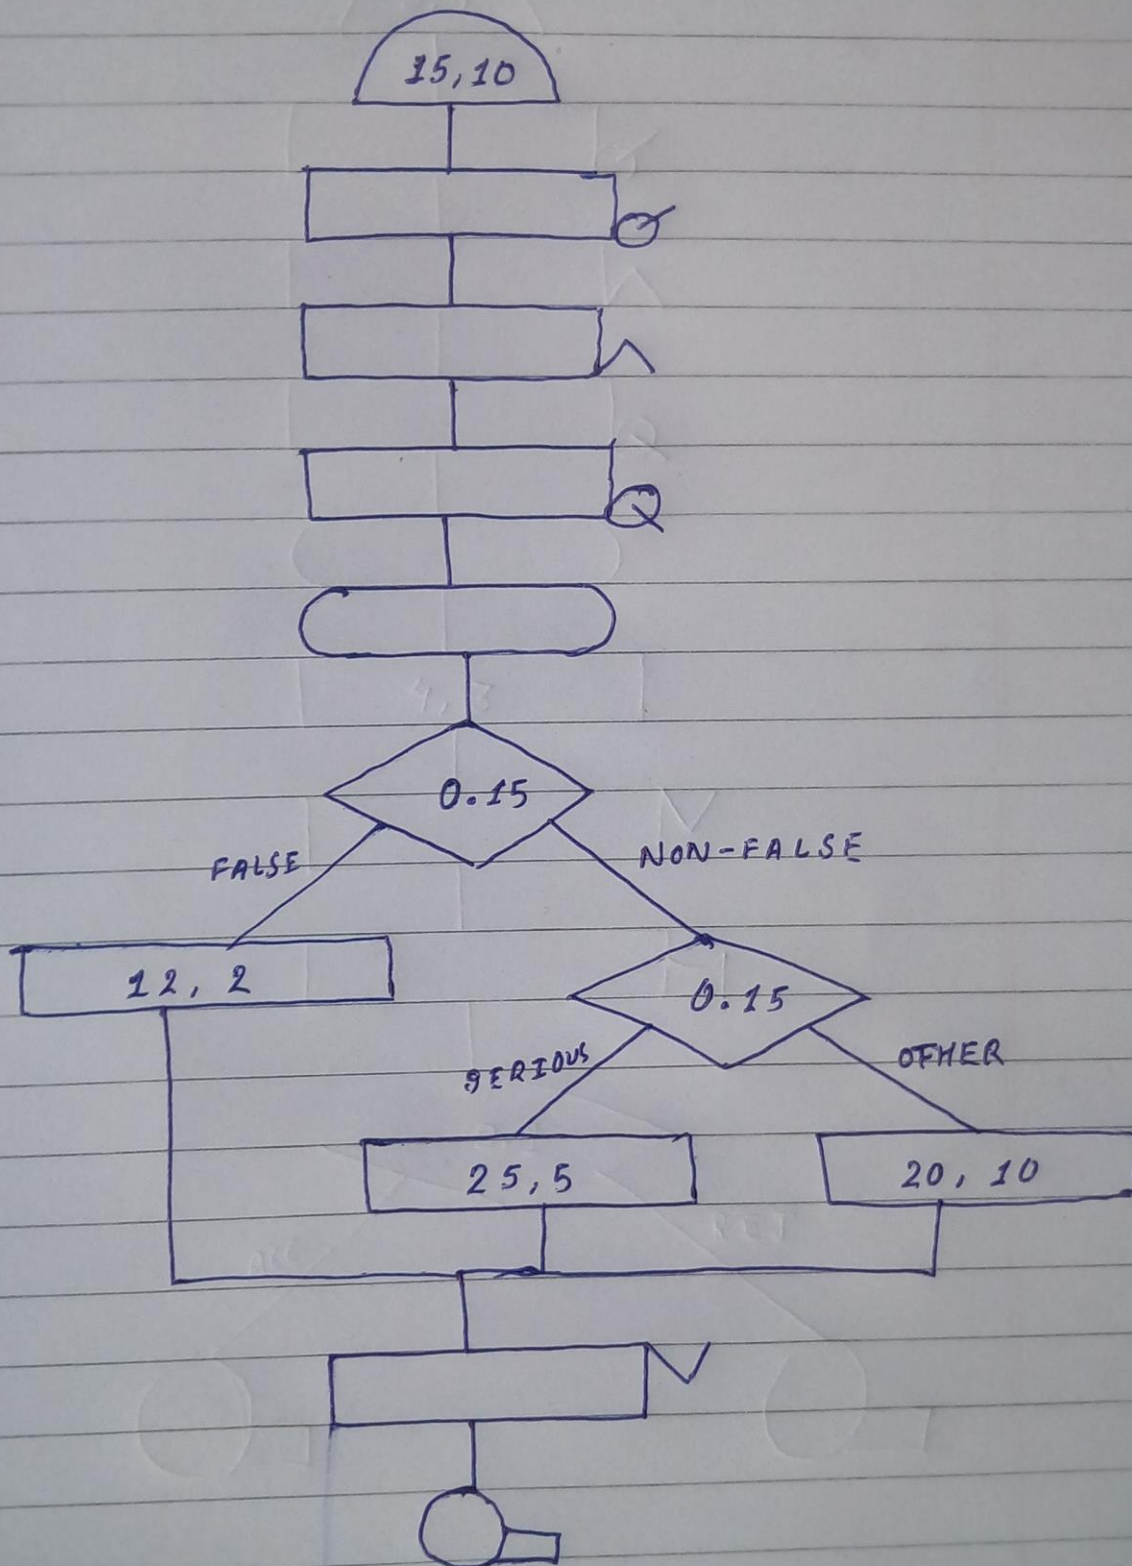 15,10
0.15
FALSE
NON-FALSE
12, 2
0.15
SERIOUS
OTHER
25,5
20, 10